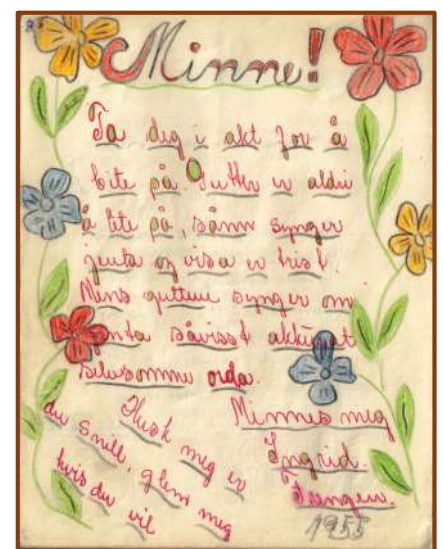 Minne!
Ta deg i akt for å
bite på. Gutter er aldri
å lite på, sånn synger
jenta og visa er trist.
Mens guttene synger om
jenta såvisst akkurat
selvsamme orda.
Minnes meg
Ingrid.
1955
Husk meg er
du snill, glem meg
hvis du vil